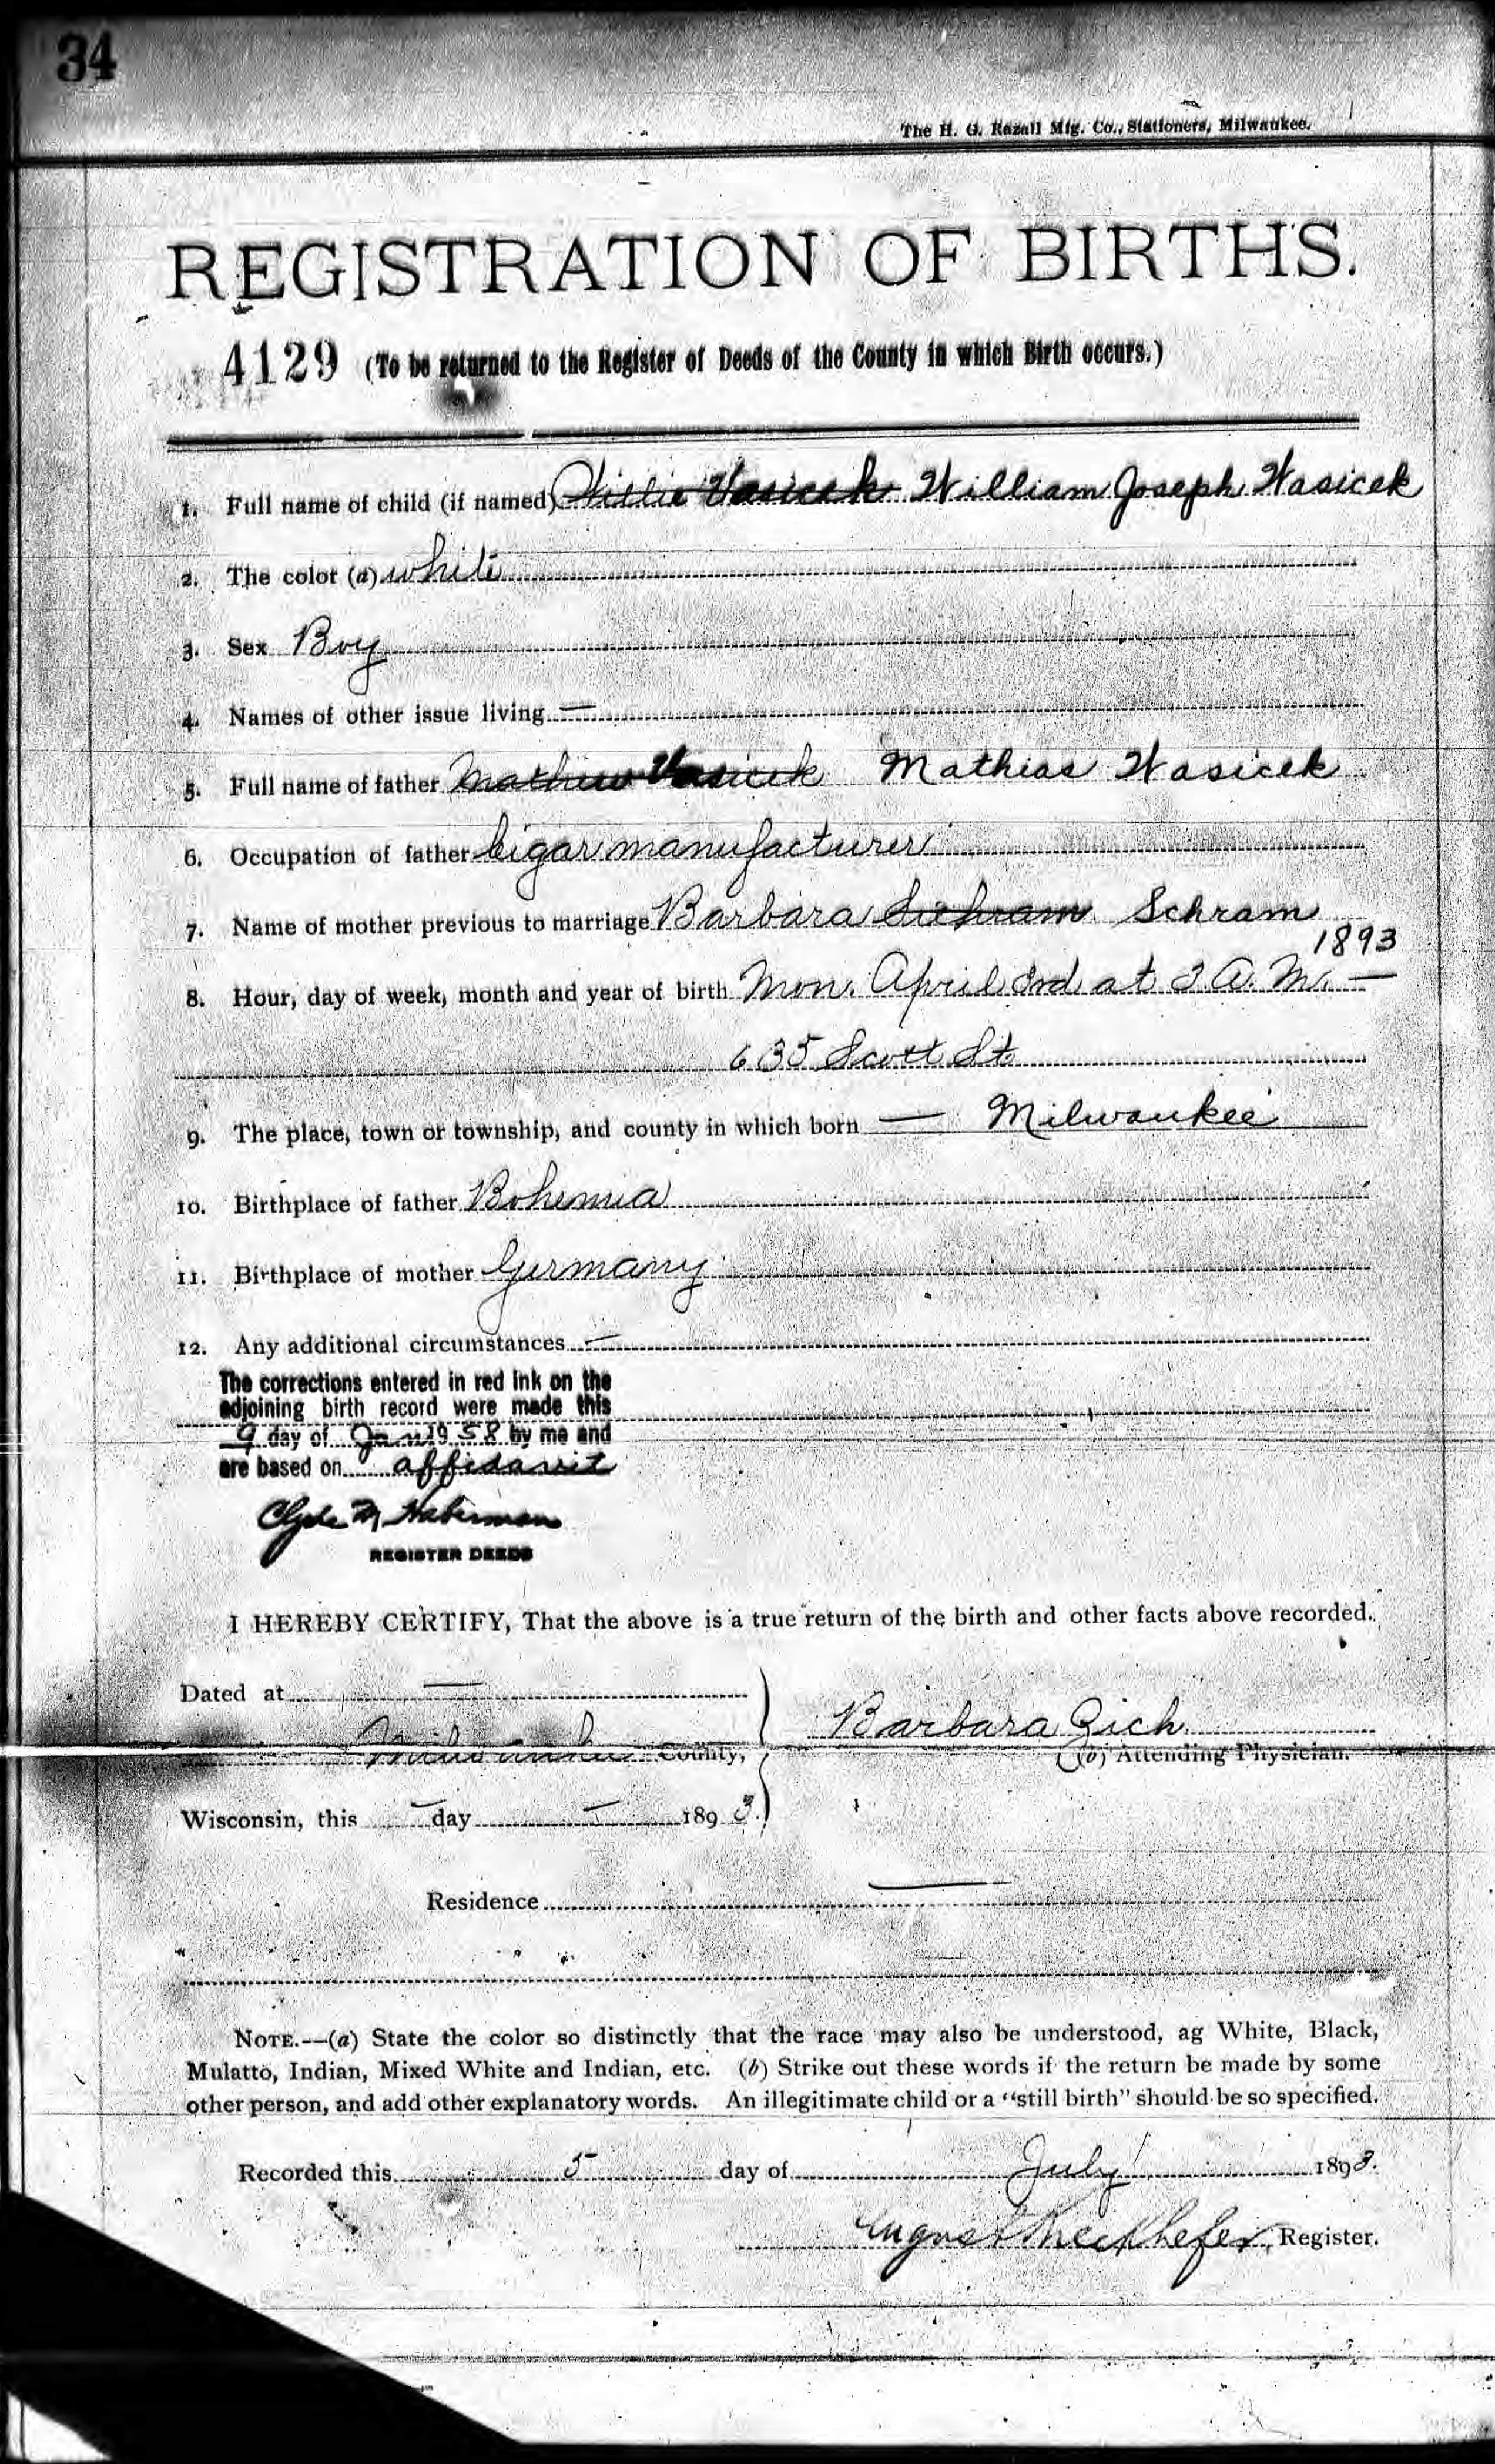 34
The H. G. Razall Mfg. Co., Stationers, Milwaukee.
REGISTRATION OF BIRTHS.
4129 (To be returned to the Register of Deeds of the County in which Birth occurs.)
1. Full name of child (if named) Willie Vasicek William Joseph Wasicek
2. The color (a) white
3. Sex Boy
4. Names of other issue living —
5. Full name of father Mathew Vasicek Mathias Wasicek
6. Occupation of father Cigar manufacturer
7. Name of mother previous to marriage Barbara Schram
1893
8. Hour, day of week, month and year of birth Mon. April 3rd at 3 A. M. —
635 Scott St
9. The place, town or township, and county in which born — Milwaukee
10. Birthplace of father Bohemia
11. Birthplace of mother Germany
12. Any additional circumstances —
The corrections entered in red ink on the
adjoining birth record were made this
9 day of Jan 1958 by me and
are based on affidavit
Clyde M. Haberman
REGISTER DEEDS
I HEREBY CERTIFY, That the above is a true return of the birth and other facts above recorded.
Dated at —
Barbara Zich
Milwaukee County,
(b) Attending Physician.
Wisconsin, this — day — 1893.
Residence —
NOTE.—(a) State the color so distinctly that the race may also be understood, ag White, Black,
Mulatto, Indian, Mixed White and Indian, etc. (b) Strike out these words if the return be made by some
other person, and add other explanatory words. An illegitimate child or a "still birth" should be so specified.
Recorded this 5 day of July 1893.
August Rieckhefer, Register.